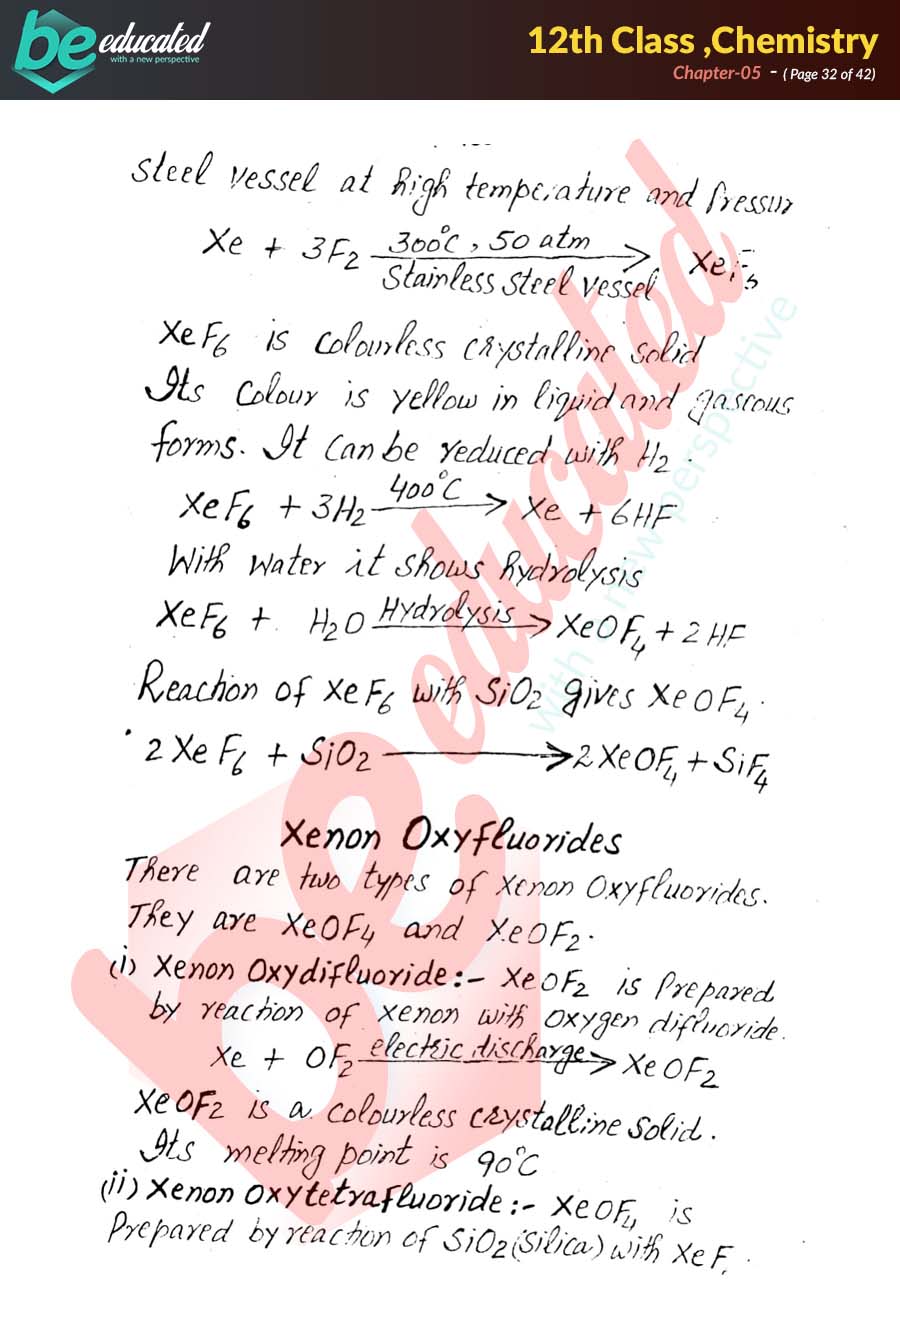 be educated
with a new perspective
12th Class ,Chemistry
Chapter-05 - ( Page 32 of 42)
Steel vessel at high temperature and Pressur
Xe + 3F2 300°C, 50 atm → XeF6
Stainless Steel vessel
XeF6 is colourless crystalline solid
Its colour is yellow in liquid and gaseous
forms. It can be reduced with H2.
XeF6 + 3H2 400°C → Xe + 6HF
With water it shows hydrolysis
XeF6 + H2O Hydrolysis → XeOF4 + 2HF
Reaction of XeF6 with SiO2 gives XeOF4.
2XeF6 + SiO2 → 2XeOF4 + SiF4
Xenon Oxyfluorides
There are two types of Xenon Oxyfluorides.
They are XeOF4 and XeOF2.
(i) Xenon Oxydifluoride:- XeOF2 is Prepared
by reaction of xenon with oxygen difluoride.
Xe + OF2 electric discharge → XeOF2
XeOF2 is a colourless crystalline solid.
Its melting point is 90°C
(ii) Xenon Oxytetrafluoride:- XeOF4 is
Prepared by reaction of SiO2 (Silica) with XeF
be educated
with a new perspective